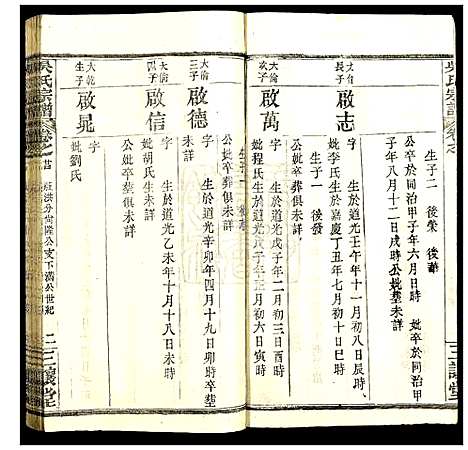 吳氏宗譜
三讓堂
生子二 後榮 後華
公卒於同治甲子年六月日時 妣卒於同治甲
子年八月十二日戌時公妣塟未詳
大倫長子 啟志
字 生於道光壬午年十一月初八日辰時
妣李氏生於嘉慶丁丑年七月初十日巳時
生子一 後發
公妣卒塟俱未詳
大倫次子 啟萬
字 生於道光戊子年二月初三日酉時
妣程氏生於道光戊子年三月初六日寅時
公妣卒葬俱未詳
大倫三子 啟德
字 生於道光辛卯年四月十九日卯時卒塟
未詳
大倫四子 啟信
字 生於道光乙未年十月十八日未時
妣胡氏生卒未詳
公妣卒塟俱未詳
大乾生子 啟晁
字
妣劉氏
吳氏宗譜
卷之
公支下滿公世紀
三讓堂